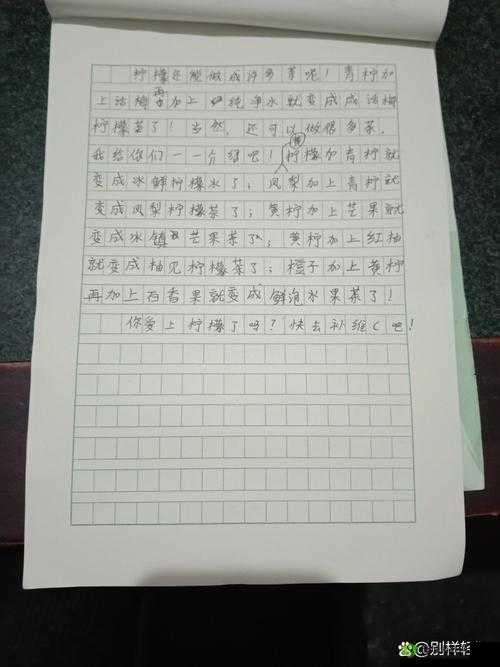 柠檬还能做成许多茶呢！青柠加
上话梅再加上纯净水就变成成话梅
柠檬茶了！当然，还可以做很多茶。
我给你们一一介绍吧！黄柠檬加青柠就
变成冰鲜柠檬水了；凤梨加上青柠就
变成凤梨柠檬茶了；黄柠加上芒果就
变成冰镇芒果茶了；黄柠加上红柚
就变成柚见柠檬茶了；橙子加上黄柠
再加上百香果就变成鲜泡水果茶了！
你爱上柠檬了吗？快去补维C吧！
@别样